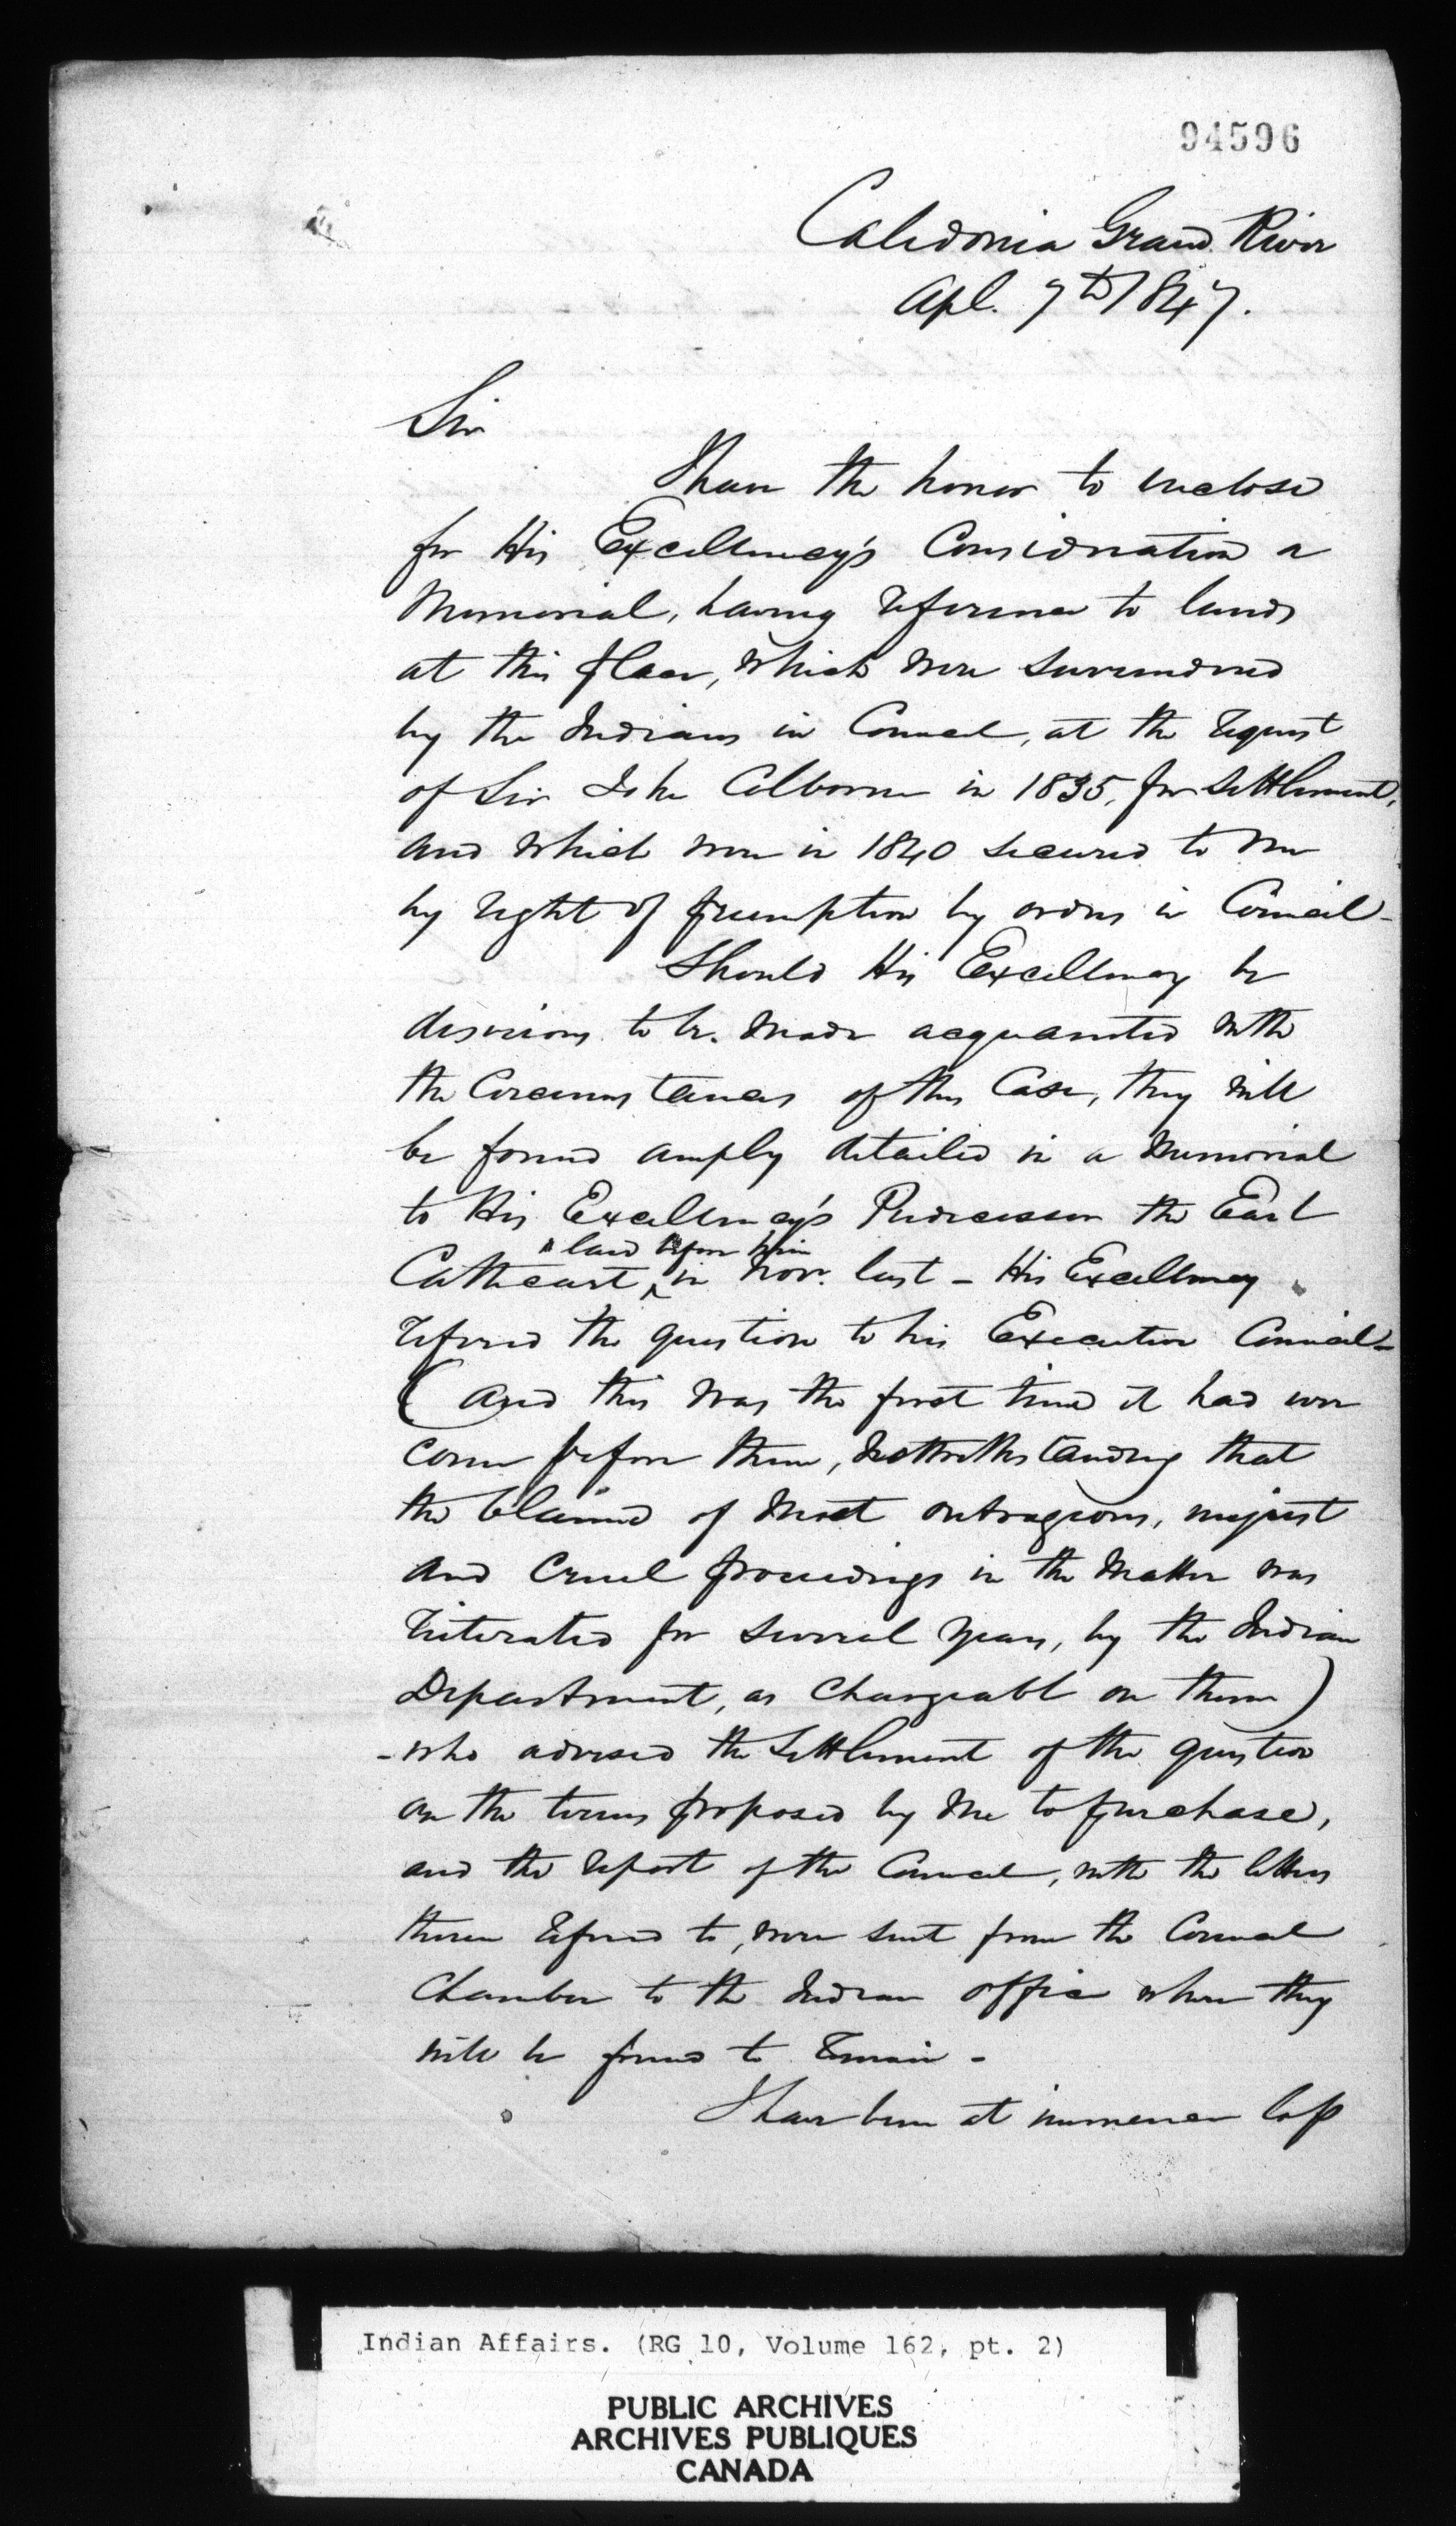 94596
Caledonia Grand River
Apl. 7th 1847.
Sir
I have the honor to enclose
for His Excellency's Consideration a
Memorial, having reference to lands
at this place, which were surrendered
by the Indians in Council, at the request
of Sir John Colborne in 1835, for settlement,
and which were in 1840 secured to me
by right of preemption by orders in Council -
Should His Excellency be
desirous to be made acquainted with
the Circumstances of this Case, they will
be found amply detailed in a memorial
to His Excellency's Predecessor the Earl
laid before him
Cathcart in Novr. last - His Excellency
referred the question to his Executive Council -
(and this was the first time it had ever
come before them, notwithstanding that
the blame of most outrageous, unjust
and cruel proceedings in the matter was
reiterated for several years, by the Indian
Department, as chargeable on them)
- who advised the settlement of the question
on the terms proposed by me to purchase,
and the report of the Council, with the letters
therein referred to, were sent from the Council
Chamber to the Indian office where they
will be found to remain -
I have been at immense loss
Indian Affairs. (RG 10, Volume 162, pt. 2)
PUBLIC ARCHIVES
ARCHIVES PUBLIQUES
CANADA